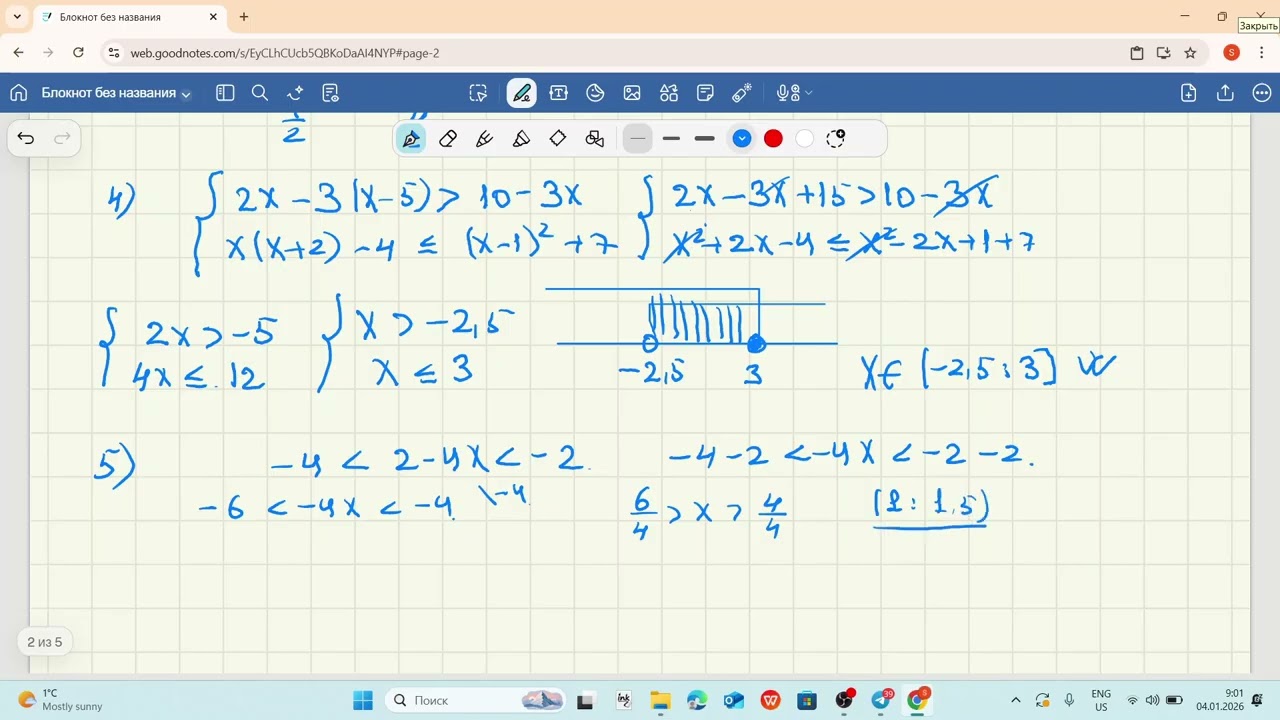 Блокнот без названия
Закрыть
web.goodnotes.com/s/EyCLhCUcb5QBKoDaAI4NYP#page-2
S
Блокнот без названия
1/2
4) { 2x - 3(x-5) > 10 - 3x { 2x - 3x + 15 > 10 - 3x
x(x+2) - 4 ≤ (x-1)² + 7 x² + 2x - 4 ≤ x² - 2x + 1 + 7
{ 2x > -5 { x > -2,5
4x ≤ 12 x ≤ 3 -2,5 3 x∈ (-2,5 ; 3]
5) -4 < 2-4x < -2 -4-2 < -4x < -2-2.
-6 < -4x < -4 \-4 6/4 > x > 4/4 (1 ; 1,5)
2 из 5
1°C
Mostly sunny
Поиск
ink
39
ENG
US
9:01
04.01.2026